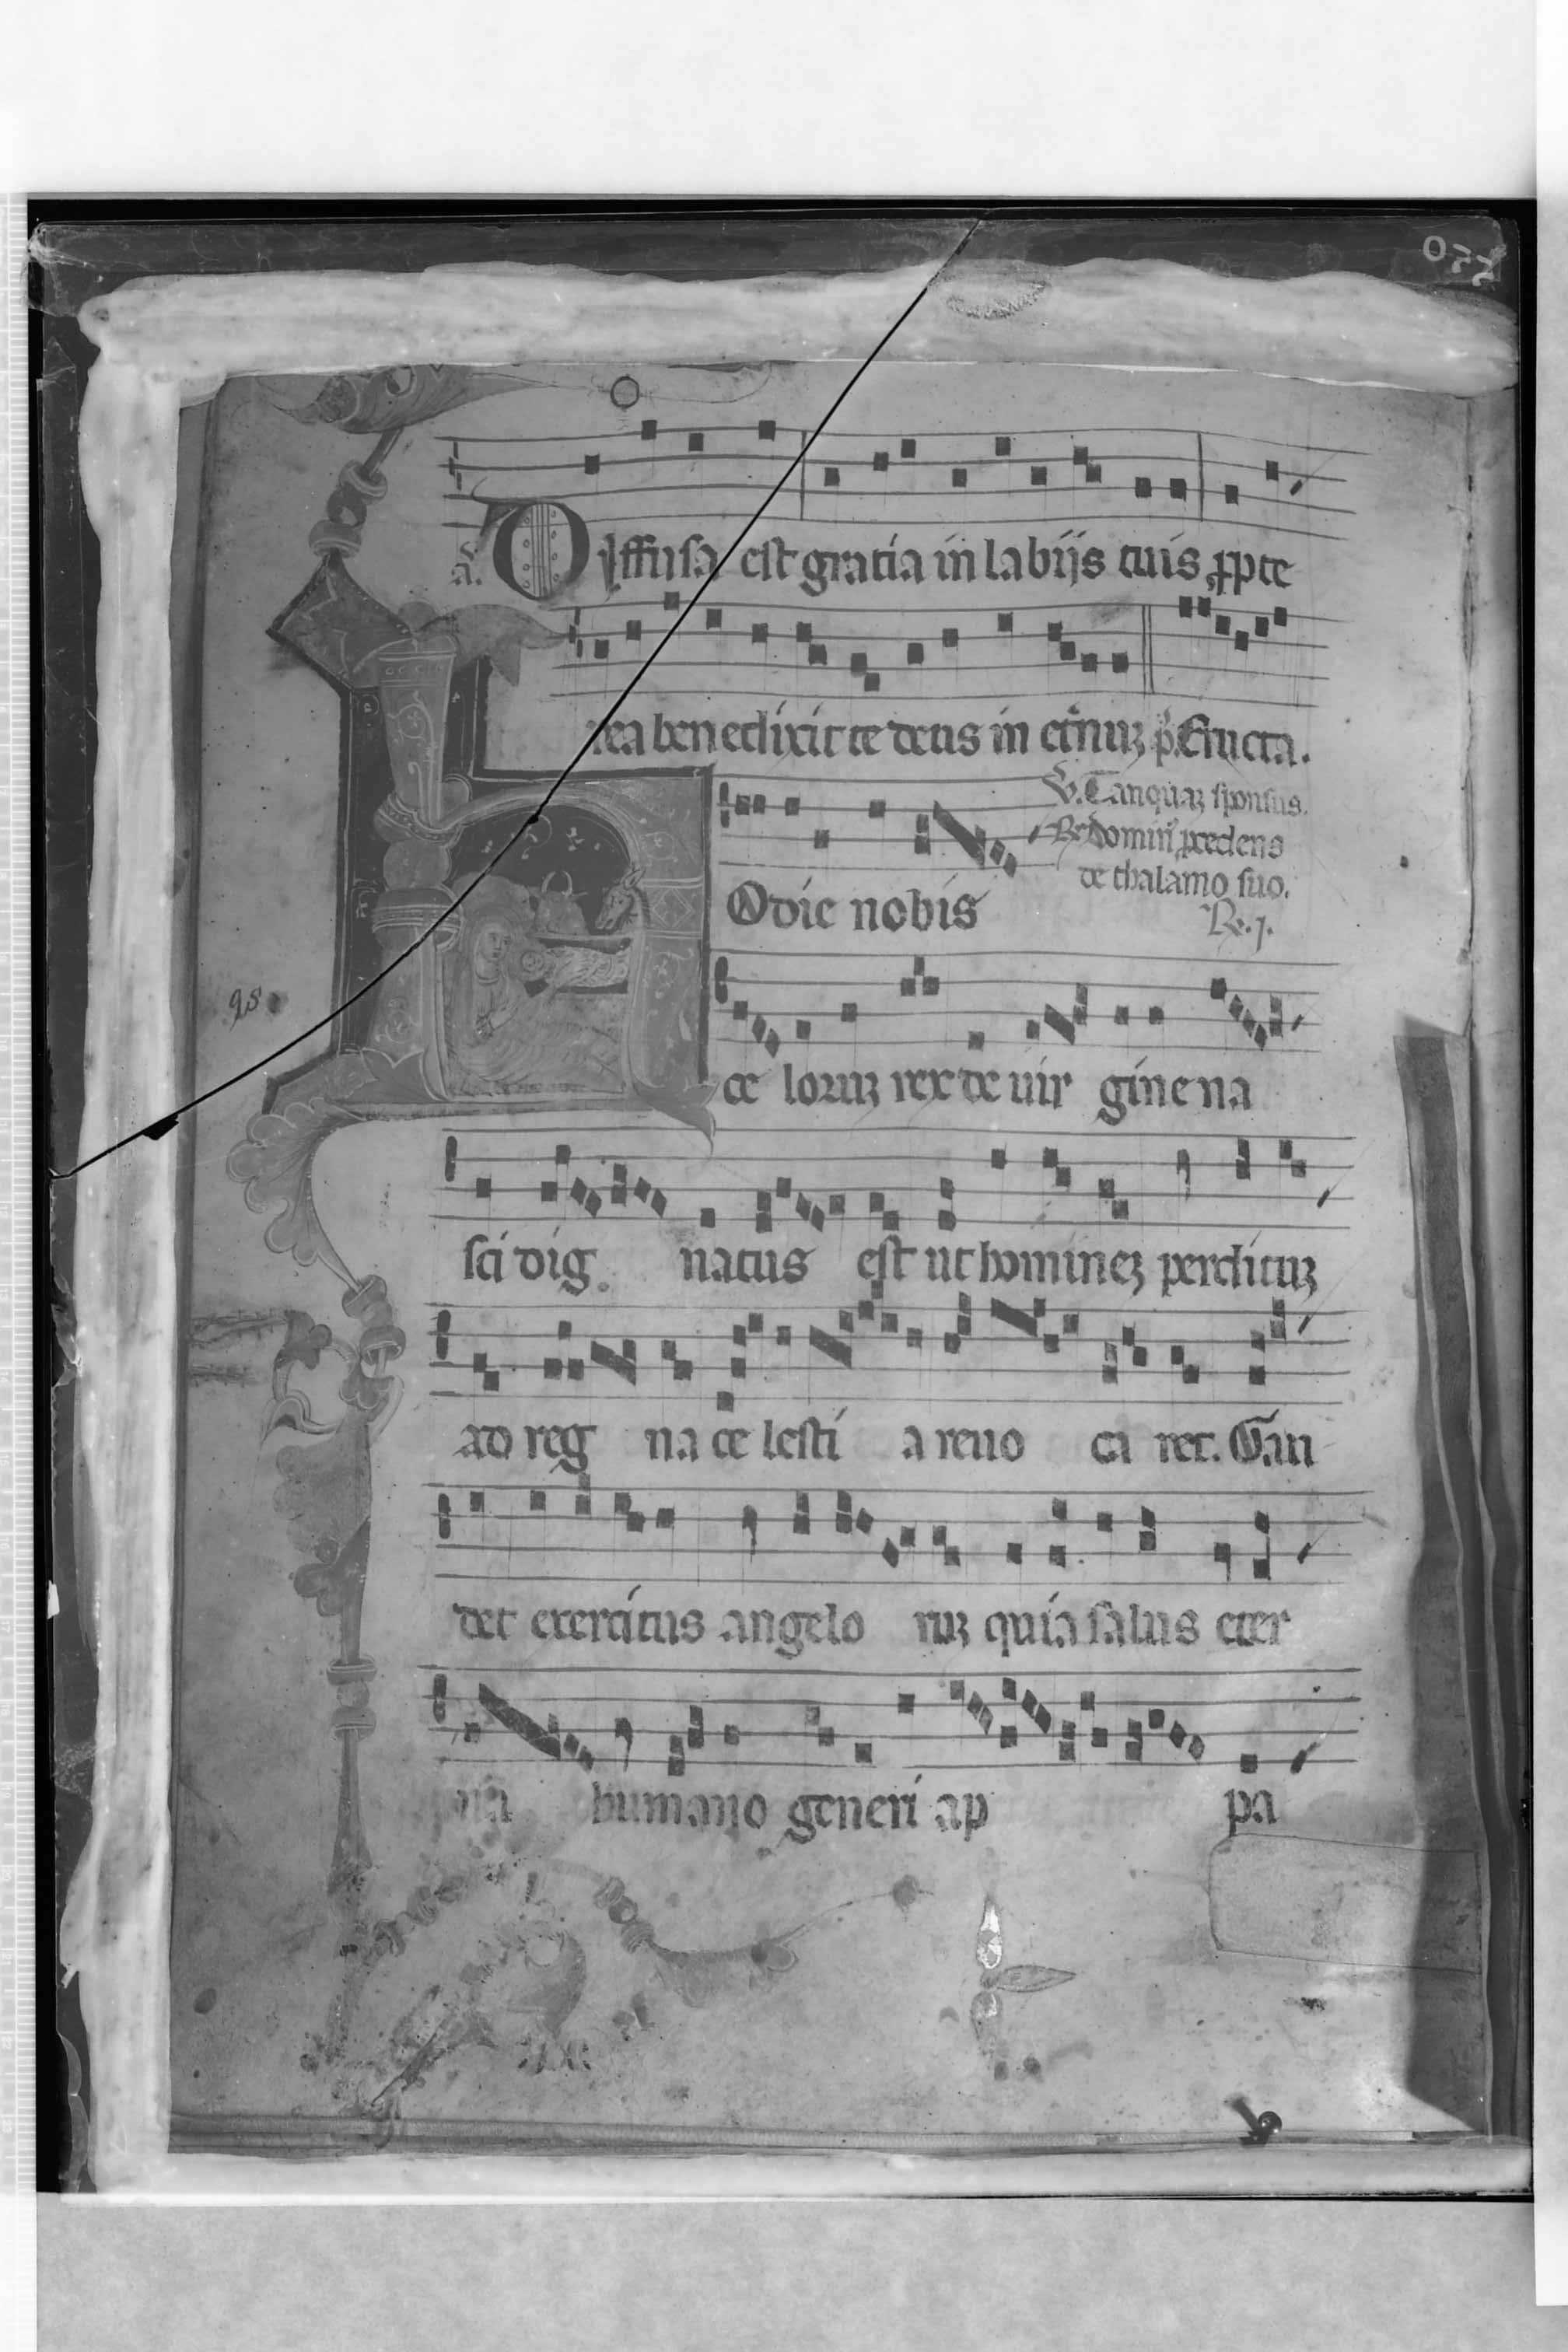 a. Diffusa est gratia in labijs tuis ppte
rea benedixit te deus in etnuz p. Eructa.
V. Tanquaz sponsus.
R. domin' pcedens
de thalamo suo.
Re. j.
Hodie nobis
ce loruz rex de uir gine na
98
sci dig natus est ut hominez perdituz
ad reg na ce lesti a reuo ca ret. Gau
det exercitus angelo ruz quia salus eter
na humano generi ap pa